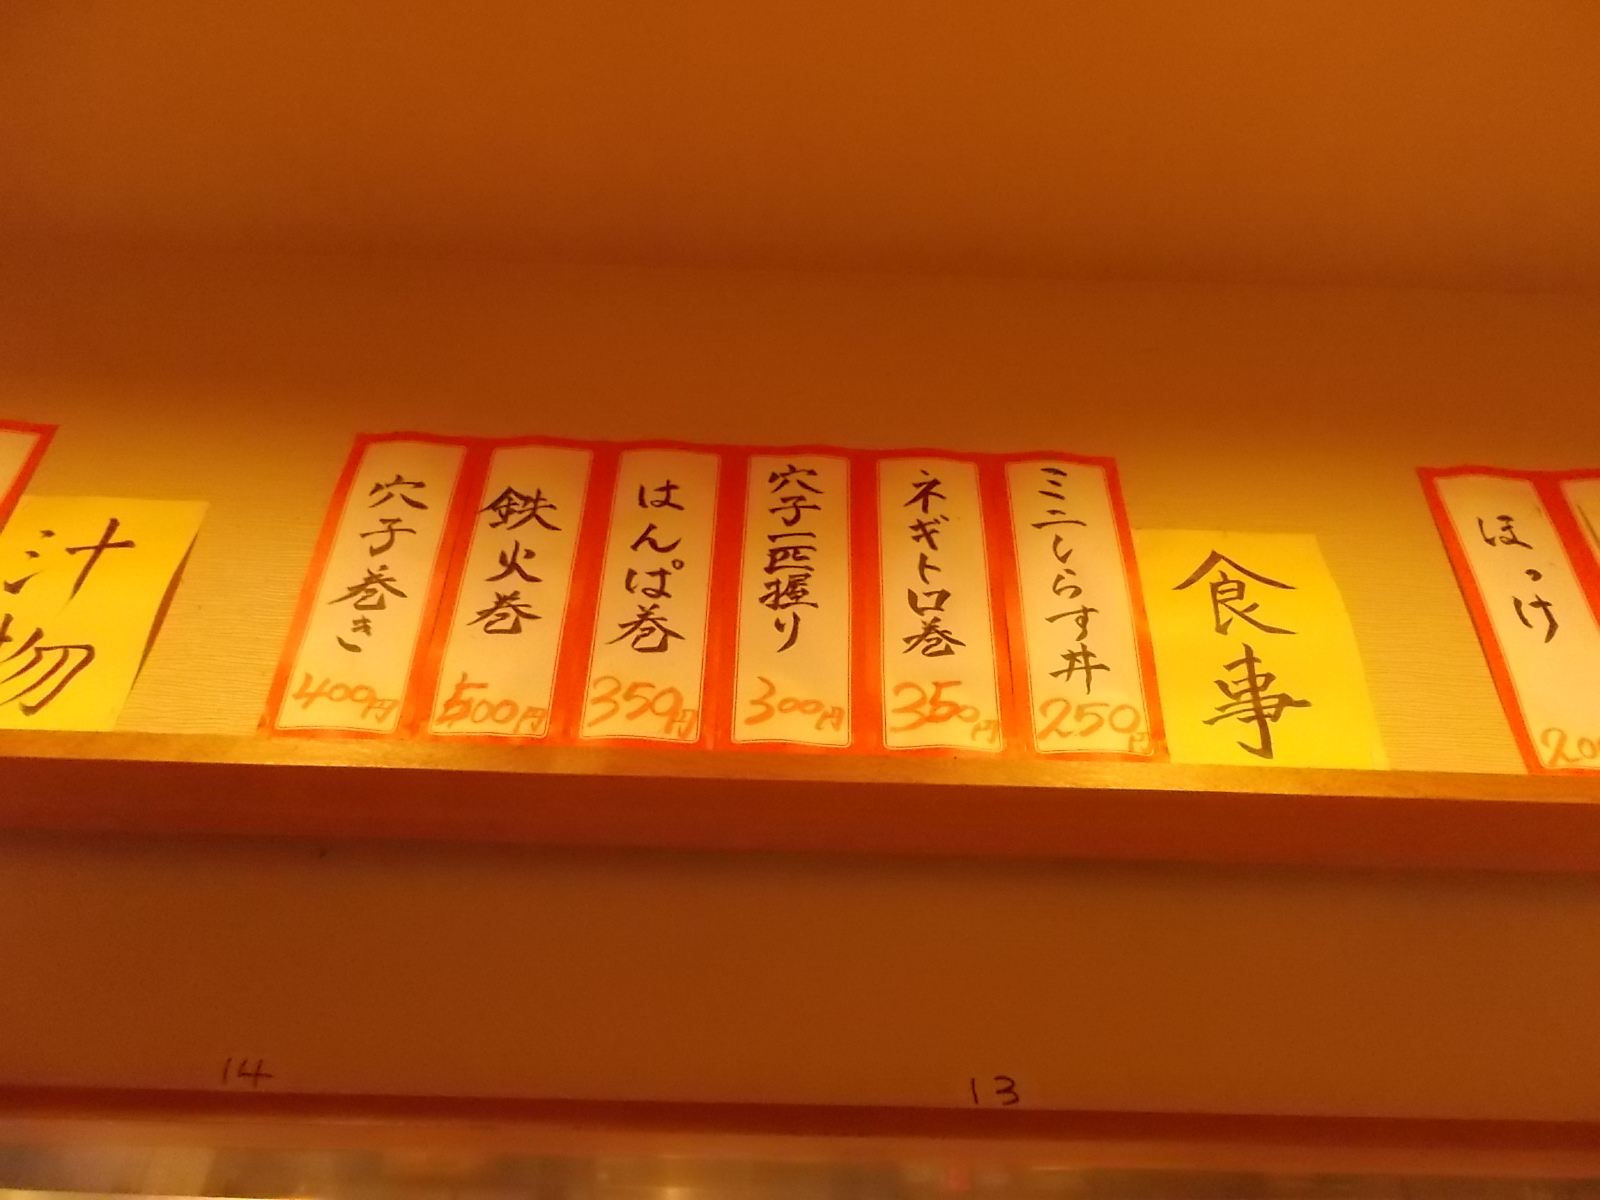 ほっけ
食事
ミニしらす丼
250円
ネギトロ巻
350円
穴子一匹握り
300円
はんぱ巻
350円
鉄火巻
500円
穴子巻き
400円
汁物
14
13